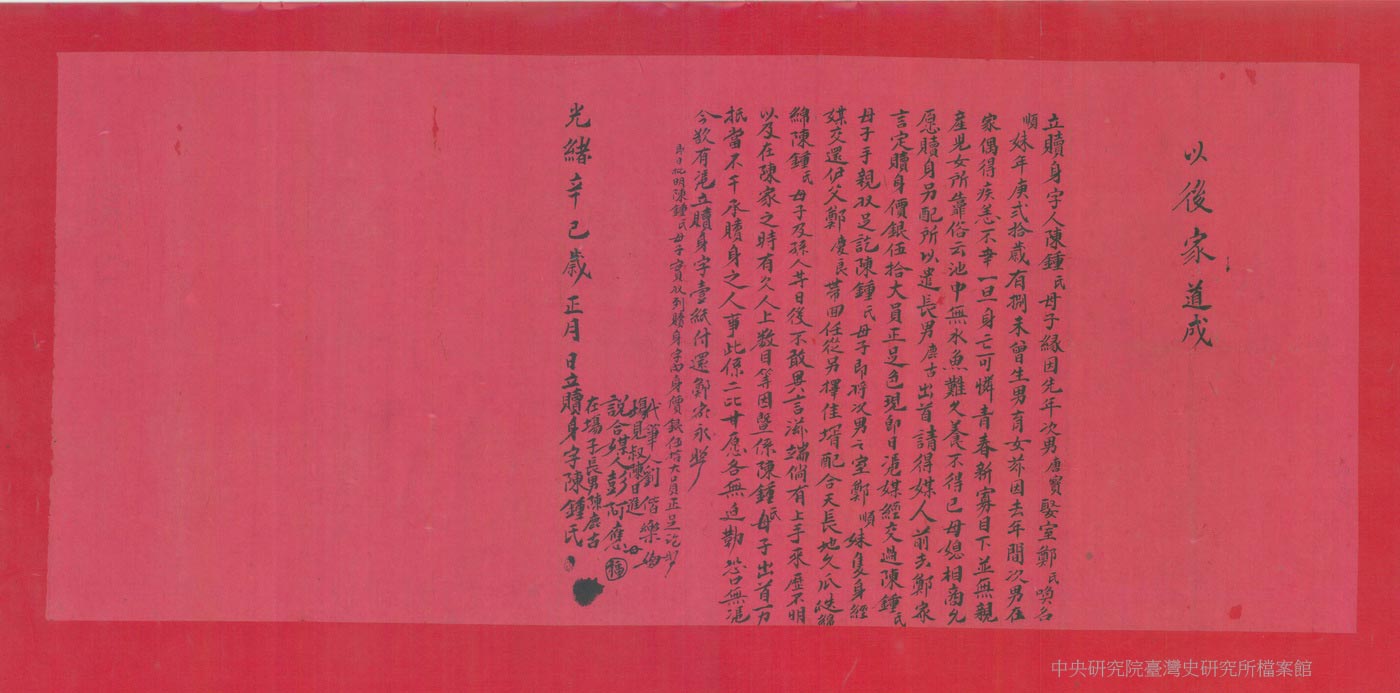 以後家道成
立贖身字人陳鍾氏母子緣因先年次男唐寶娶室鄭氏喚名
順妹年庚弍拾歲有捌未曾生男育女茲因去年間次男在
家偶得疾恙不幸一旦身亡可憐青春新寡目下並無親
產兒女所靠俗云池中無水魚難久養不得已母媳相商允
愿贖身另配所以遣長男唐古出首請得媒人前去鄭家
言定贖身價銀伍拾大員正足色現即日憑媒經交過陳鍾氏
母子手親收足訖陳鍾氏母子即將次男之室鄭順妹隻身經
媒交還伊父鄭慶良帶回任從另擇佳壻配合天長地久瓜瓞綿
綿陳鍾氏母子及孫人等日後不敢異言滋端倘有上手來歷不明
以及在陳家之時有欠人上數目等因暨係陳鍾氏母子出首一力
抵當不干承贖身之人事此係二比甘愿各無迫勒恐口無憑
今欲有憑立贖身字壹紙付還鄭家永照
即日批明陳鍾氏母子實收到贖身字內身價銀伍拾大員正足訖照
代筆人劉偕樂
場見叔陳日進
說合媒人彭阿應
在場子長男陳唐古
光緒辛巳歲正月 日立贖身字陳鍾氏
中央研究院臺灣史研究所檔案館